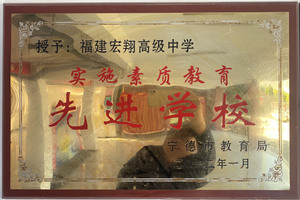 授予：福建宏翔高级中学
实施素质教育
先进学校
宁德市教育局
年一月